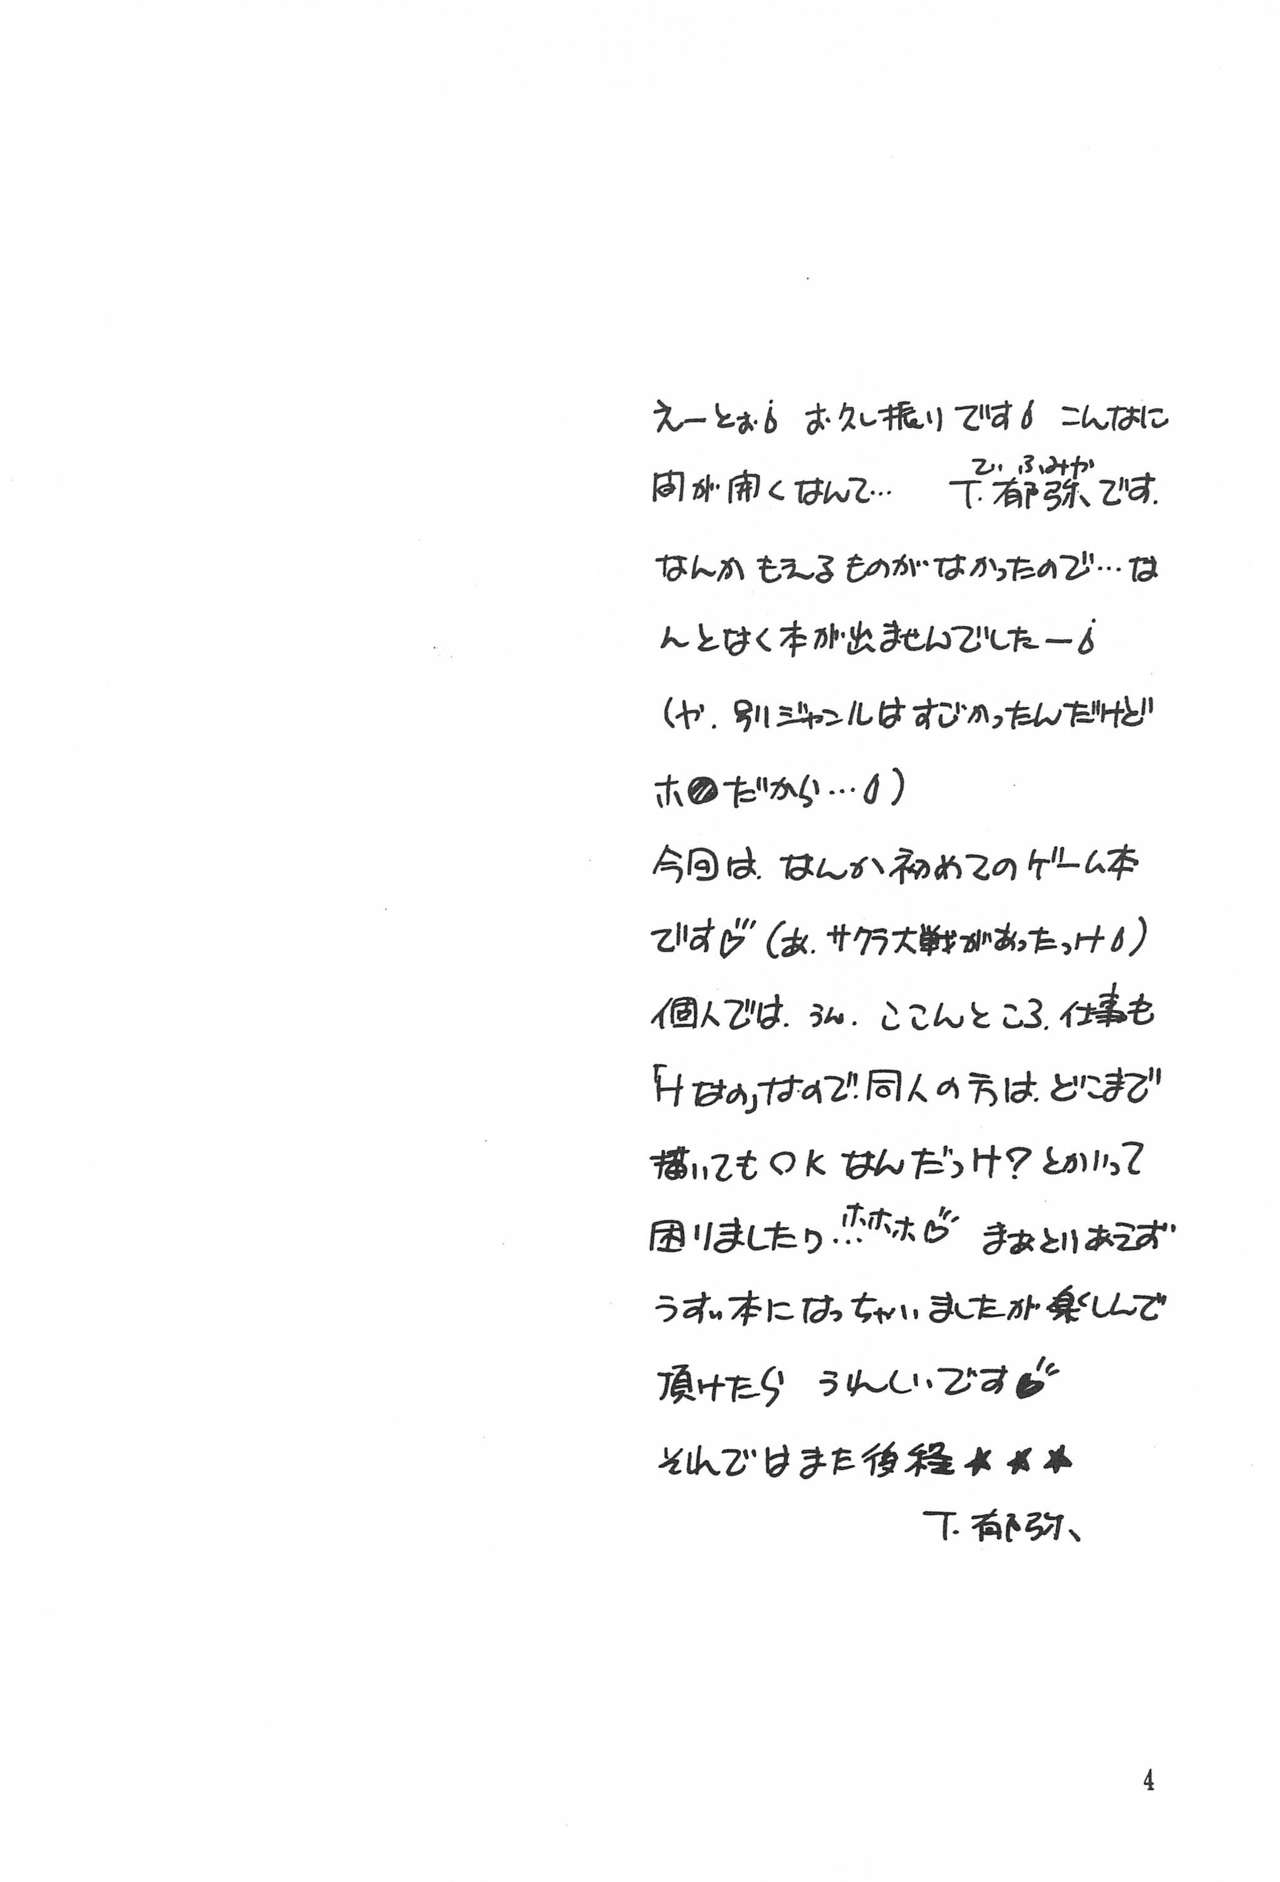 えーとぉ お久し振りです こんなに
間が開くなんて… T.郁弥、です.
でぃ ふみや
なんか もえるものがなかったので…な
んとなく本が出ませんでしたー
(や. 別ジャンルはすごかったんだけど
ホ●だから…)
今回は. なんか初めてのゲーム本
です♡(あ. サクラ大戦があったっけ)
個人では. うん. ここんところ. 仕事も
「Hなの」なので! 同人の方は. どこまで
描いてもOKなんだっけ?とかいって
困りましたワ…ホホホ♡ まぁとりあえず
うすい本になっちゃいましたが楽しんで
頂けたら うれしいです♥
それではまた後程★★★
T.郁弥、
4